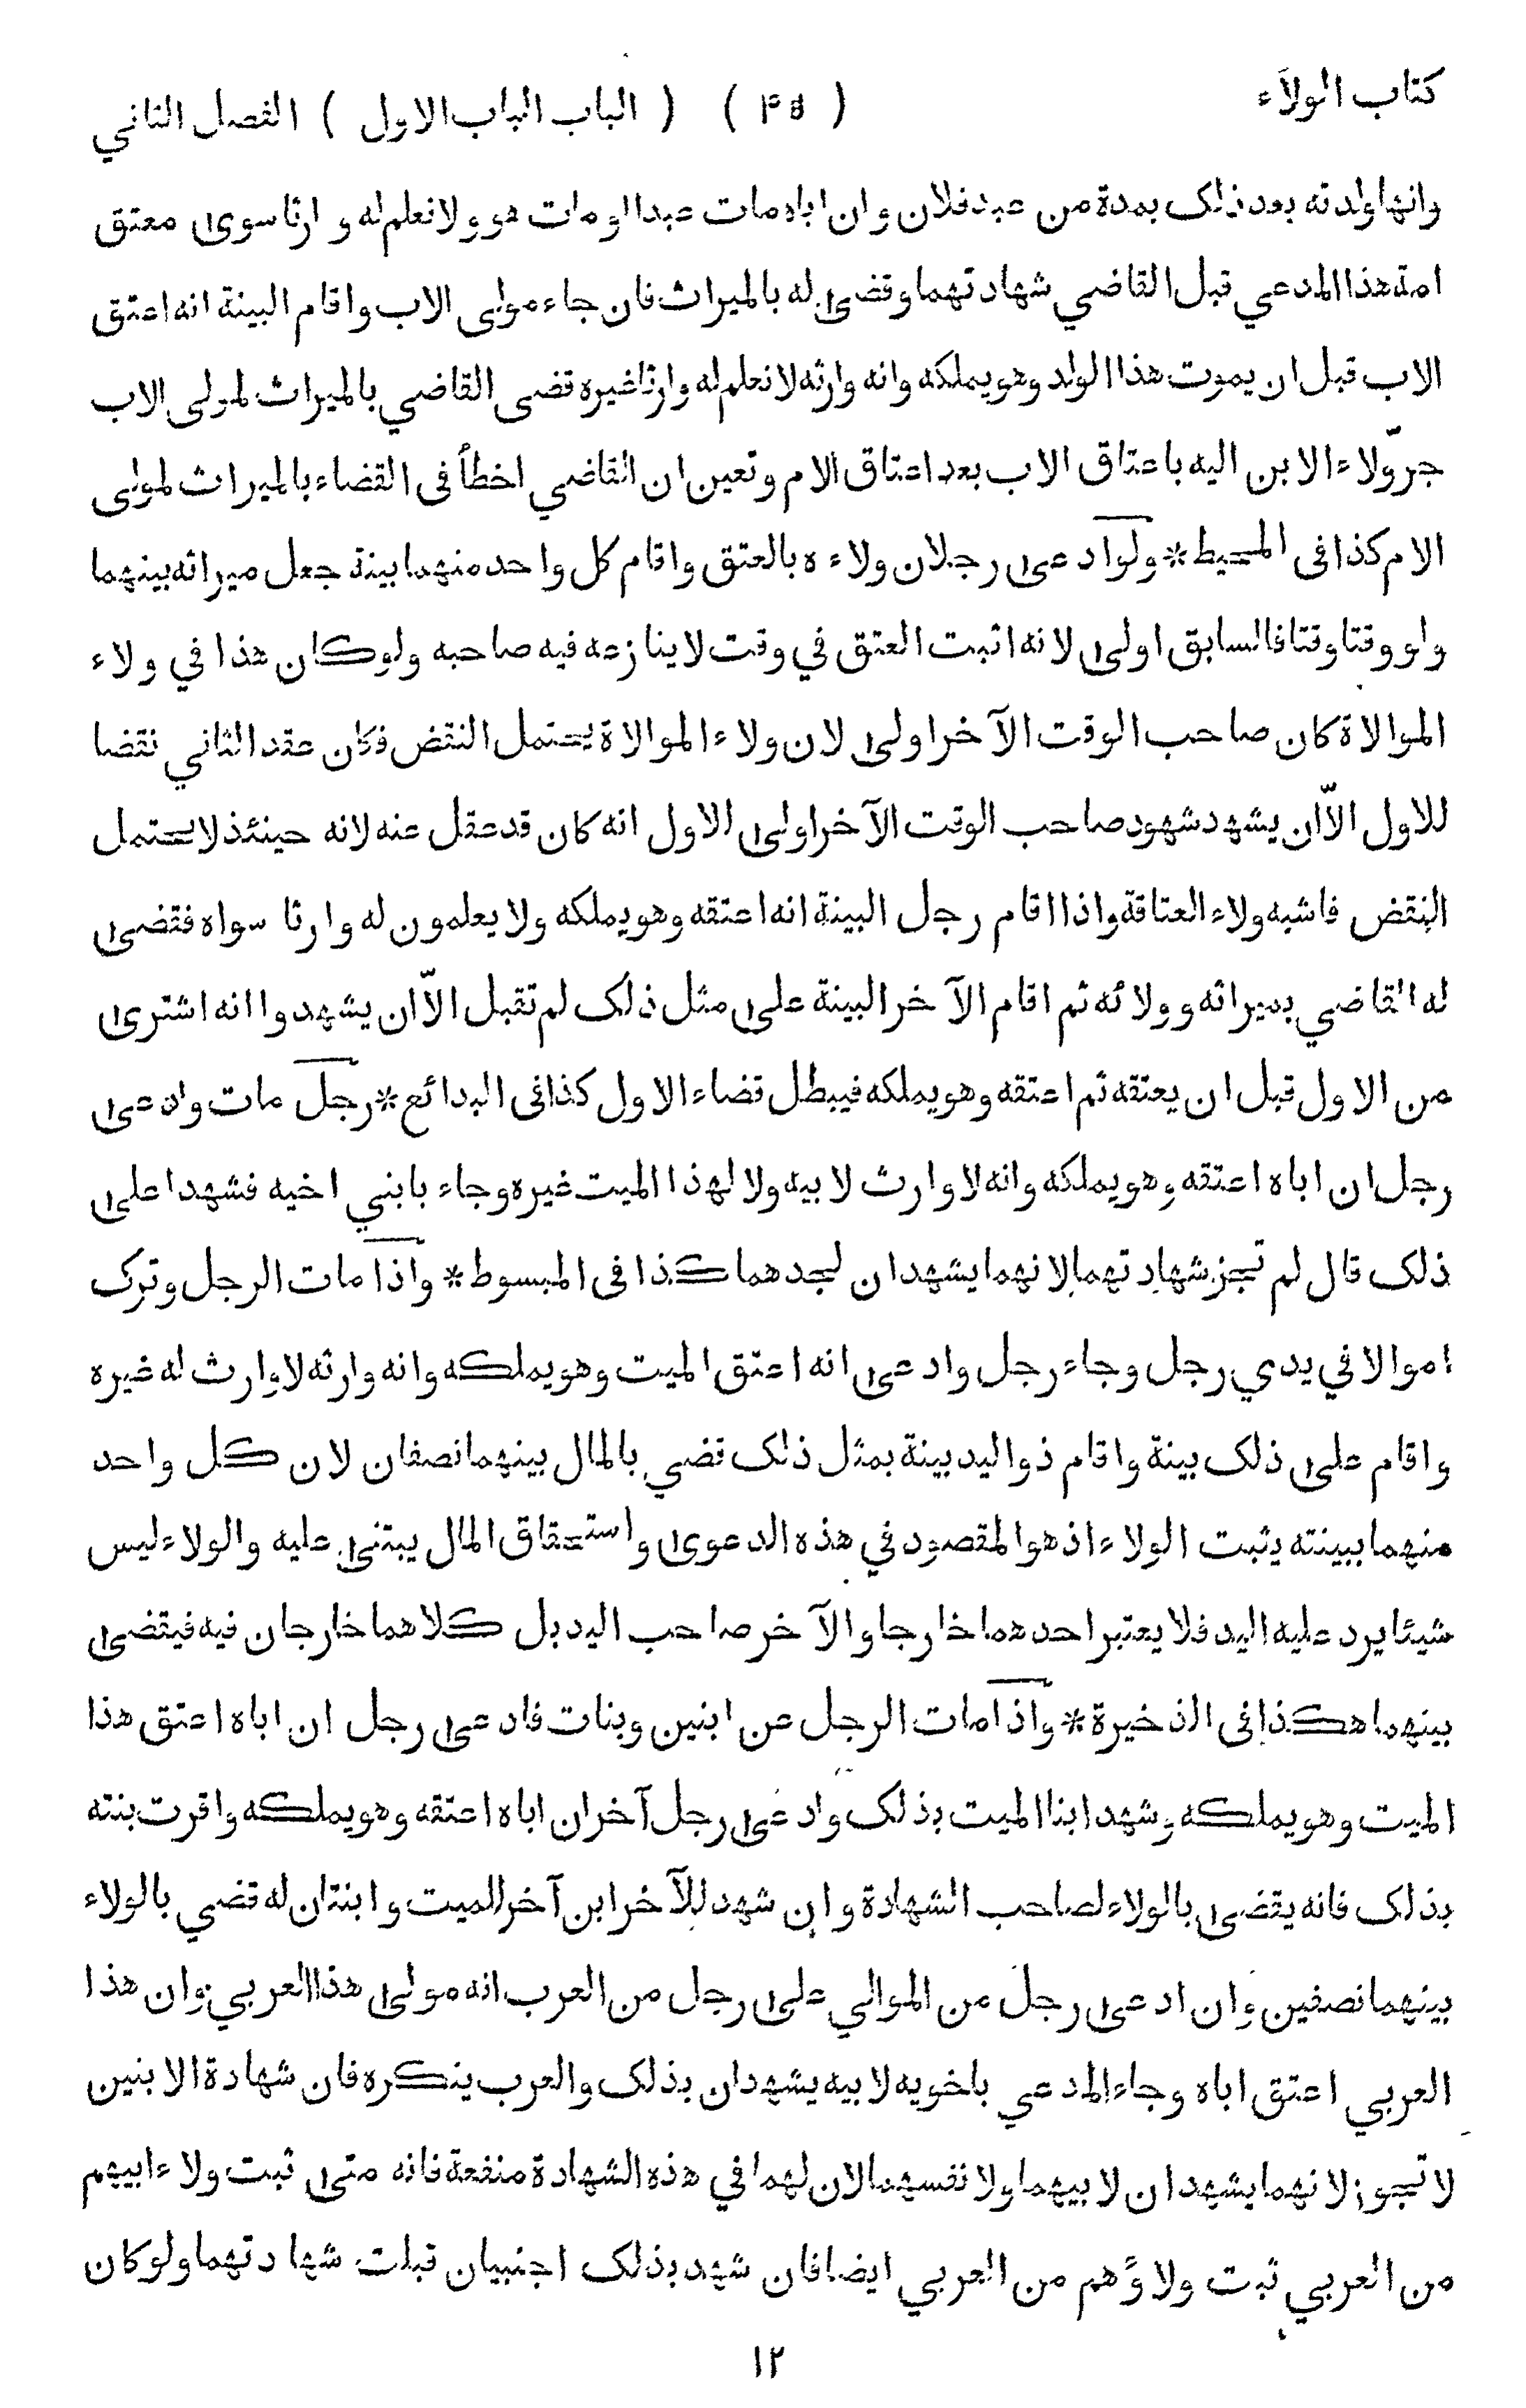 كتاب الولاء ( ٤٥ ) ( الباب الباب الاول ) الفصل الثاني
وانها ولدته بعد ذلك بمدة من عبد فلان وان اباه مات عبدا او مات هو ولا نعلم له وارثا سوى معتق
امته هذا المدعي قبل القاضي شهادتهما وقضى له بالميراث فان جاء مولى الاب واقام البينة انه اعتق
الاب قبل ان يموت هذا الولد وهو يملكه وانه وارثه لا نعلم له وارثا غيره قضى القاضي بالميراث لمولى الاب
جرّ ولاء الابن اليه باعتاق الاب بعد اعتاق الام وتعين ان القاضي اخطأ فى القضاء بالميراث لمولى
الام كذا فى المحيط * ولو ادعى رجلان ولاءه بالعتق واقام كل واحد منهما بينة جعل ميراثه بينهما
ولو وقتا وقتا فالسابق اولى لانه اثبت العتق في وقت لا ينازعه فيه صاحبه ولو كان هذا في ولاء
الموالاة كان صاحب الوقت الآخر اولى لان ولاء الموالاة يحتمل النقض فكان عقد الثاني نقضا
للاول الاّ ان يشهد شهود صاحب الوقت الآخر اولى للاول انه كان قد عقل عنه لانه حينئذ لا يحتمل
النقض فاشبه ولاء العتاقة واذا اقام رجل البينة انه اعتقه وهو يملكه ولا يعلمون له وارثا سواه فقضى
له القاضي بميراثه وولائه ثم اقام الآخر البينة على مثل ذلك لم تقبل الاّ ان يشهدوا انه اشترى
من الاول قبل ان يعتقه ثم اعتقه وهو يملكه فيبطل قضاء الاول كذا فى البدائع * رجل مات وادعى
رجل ان اباه اعتقه وهو يملكه وانه لا وارث لابيه ولا لهذا الميت غيره وجاء بابني اخيه فشهدا على
ذلك قال لم تجز شهادتهما لانهما يشهدان لجدهما كذا فى المبسوط * واذا مات الرجل وترك
اموالا في يدي رجل وجاء رجل وادعى انه اعتق الميت وهو يملكه وانه وارثه لا وارث له غيره
واقام على ذلك بينة واقام ذو اليد بينة بمثل ذلك قضي بالمال بينهما نصفان لان كل واحد
منهما ببينته يثبت الولاء اذ هو المقصود في هذه الدعوى واستحقاق المال يبتنى عليه والولاء ليس
شيئا يرد عليه اليد فلا يعتبر احدهما خارجا والآخر صاحب اليد بل كلاهما خارجان فيه فيقضى
بينهما هكذا فى الذخيرة * واذا مات الرجل عن ابنين وبنات فادعى رجل ان اباه اعتق هذا
الميت وهو يملكه وشهد ابنا الميت بذلك وادعى رجل آخر ان اباه اعتقه وهو يملكه واقرت بنته
بذلك فانه يقضى بالولاء لصاحب الشهادة وان شهد للآخر ابن آخر للميت وابنتان له قضي بالولاء
بينهما نصفين وان ادعى رجل من الموالي على رجل من العرب انه مولى هذا العربي وان هذا
العربي اعتق اباه وجاء المدعي باخويه لابيه يشهدان بذلك والعرب ينكره فان شهادة الابنين
لا تجوز لانهما يشهدان لابيهما ولا نفسهما لان لهما في هذه الشهادة منفعة فانه متى ثبت ولاء ابيهم
من العربي ثبت ولاؤهم من العربي ايضا فان شهد بذلك اجنبيان قبلت شهادتهما ولو كان
١٢